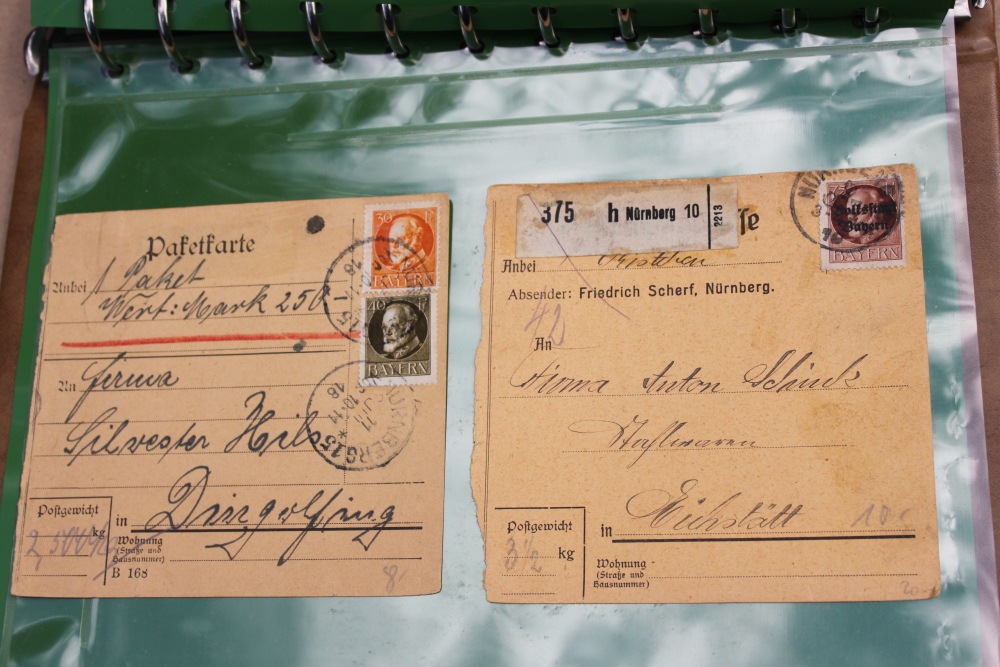 Paketkarte
Anbei 1 Paket
Wert: Mark 250
An Firma
Silvester Hils
in Dingolfing
Postgewicht
kg
Wohnung
(Straße und
Hausnummer)
B 168
8-
30 PF
BAYERN
40 PF
BAYERN
NÜRNBERG 15
375 h Nürnberg 10
2213
Anbei
Absender: Friedrich Scherf, Nürnberg.
42
An
Firma Anton Schuck
Stahlwaren
in Eichstätt
Postgewicht
3 1/2 kg
Wohnung
(Straße und
Hausnummer)
Volksstaat
Bayern
BAYERN